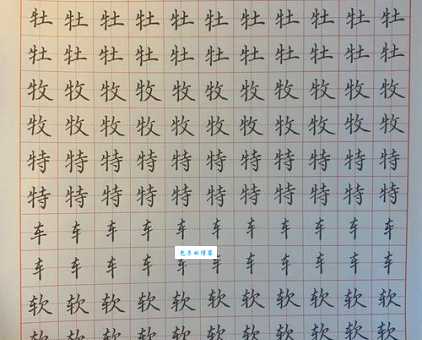 牡牡牡牡牡牡牡牡牡牡牡
牡牡牡牡牡牡牡牡牡牡牡
牧牧牧牧牧牧牧牧牧牧牧
牧牧牧牧牧牧牧牧牧牧牧
特特特特特特特特特特特
特特特特特特特特特特特
车车车车车车车车车车车
车车车车车车车车车车车
软软软软软软软软软软软
软软软软软软软软软软软